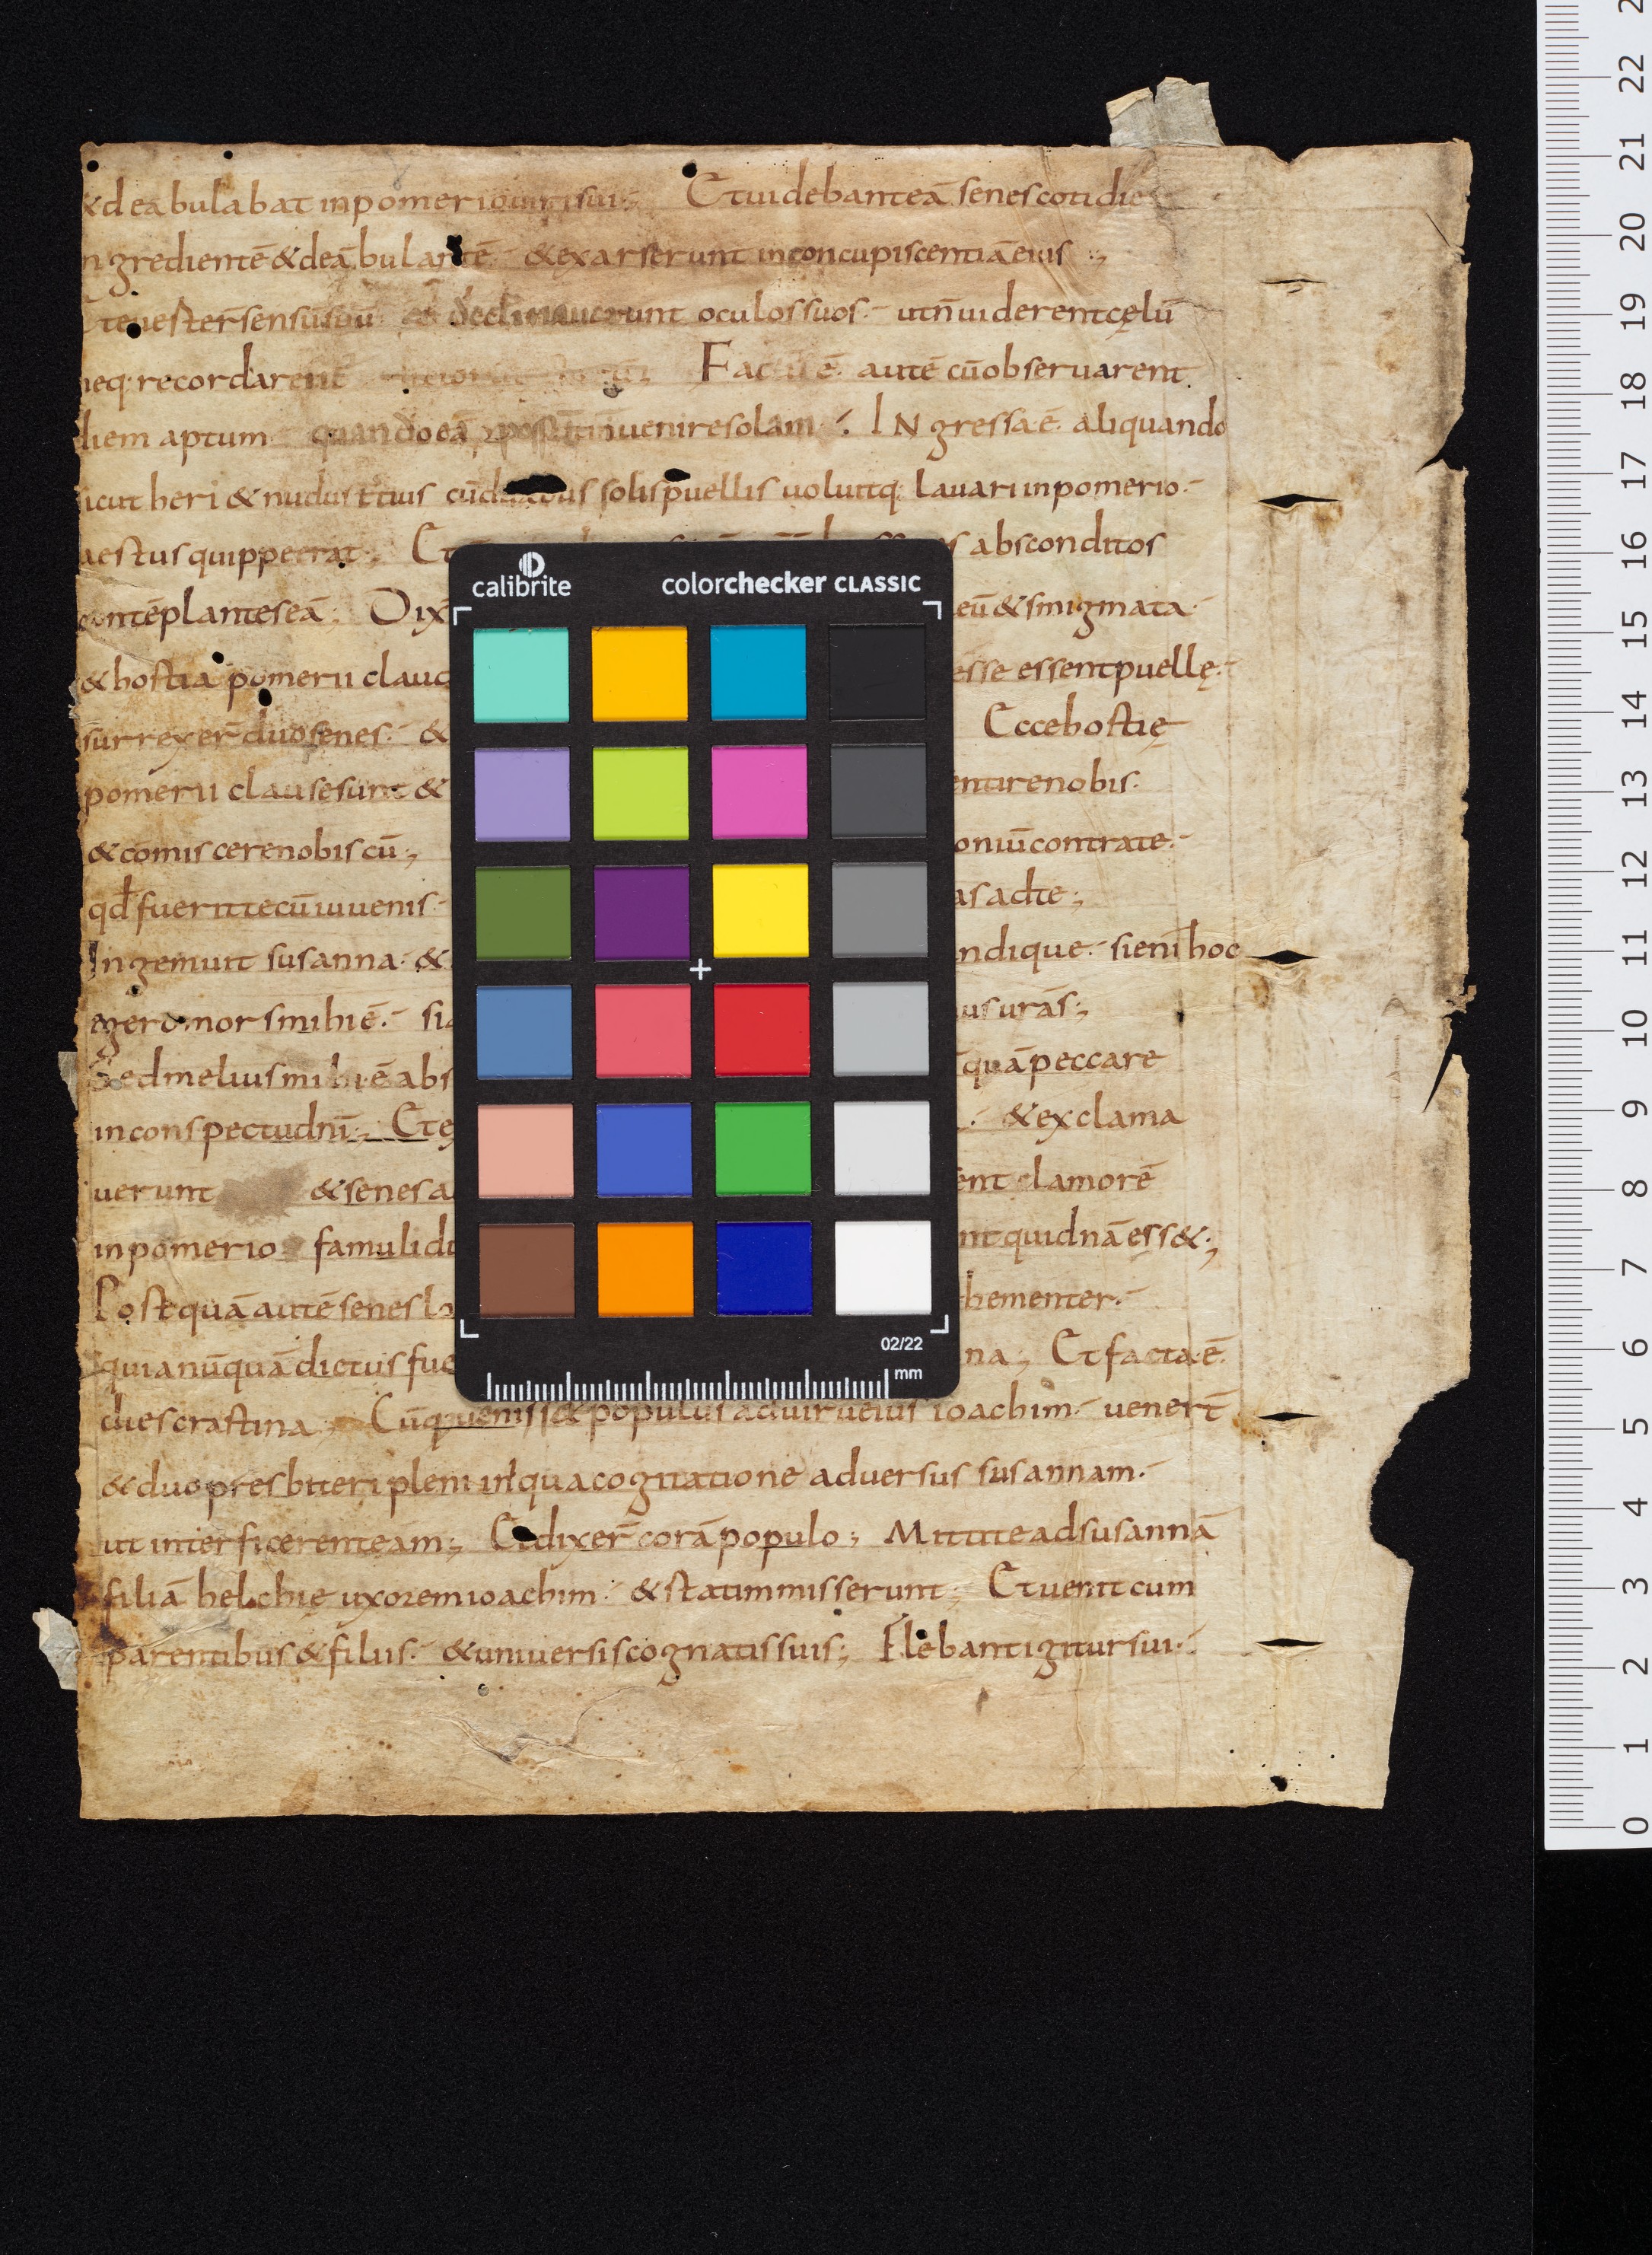 &deābulabat inpomerio uiri sui·; Etuidebanteā senes cotidie
ngredientē &deābulantē· &exarserunt inconcupiscentiāeius ·;,
teuester sensūsuū & declinauerunt oculos suos·- utn̄uiderentcęlū
neq; recordarent Factūē· autē cūobseruarent
diem aptum· quandoeā possint inuenire solam ·. INgressaē· aliquando
sicut heri & nudustertius cūduabus solis puellis uoluitq; lauari inpomerio·-
aestus quippeerat·; Et absconditos
contēplantes eā; Dix eū&smigmata·-
&hostia pomerii clauc esse essent puellę·-
surrexer̄ duo senes·- & Ecce hostię
pomerii clause sunt & entire nobis·
&comiscere nobiscū·, oniū contra te·-
qd̄ fuerit tecū iuuenis·- as adte;
Ingemuit susanna· & ndique·- sieni hoc
egero mors mihi ē·- si usuras·;
Sed melius mihi ē abs quā peccare
inconspectu dn̄i·; Et · &exclama
uerunt &senes a ent clamorē
inpomerio famuli d nt quidnā ess&·;
Postquā autē senes lo hementer·-
quia nūquā dictus fue na; Et factaē·
dies crastina· Cūq; ueniss& populus aduirū eius ioachim·- uener̄t
&duo presbiteri pleni iniqua cogitatione aduersus susannam·-
ut interficerent eam·; Et dixer̄ corā populo; Mittite ad susannā
filiā helchię uxorem ioachim· &statim misserunt·; Et uenit cum
parentibus &filiis·- &uniuersis cognatis suis; Flebant igitur sui·-
calibrite colorchecker CLASSIC
02/22
mm
0 1 2 3 4 5 6 7 8 9 10 11 12 13 14 15 16 17 18 19 20 21 22